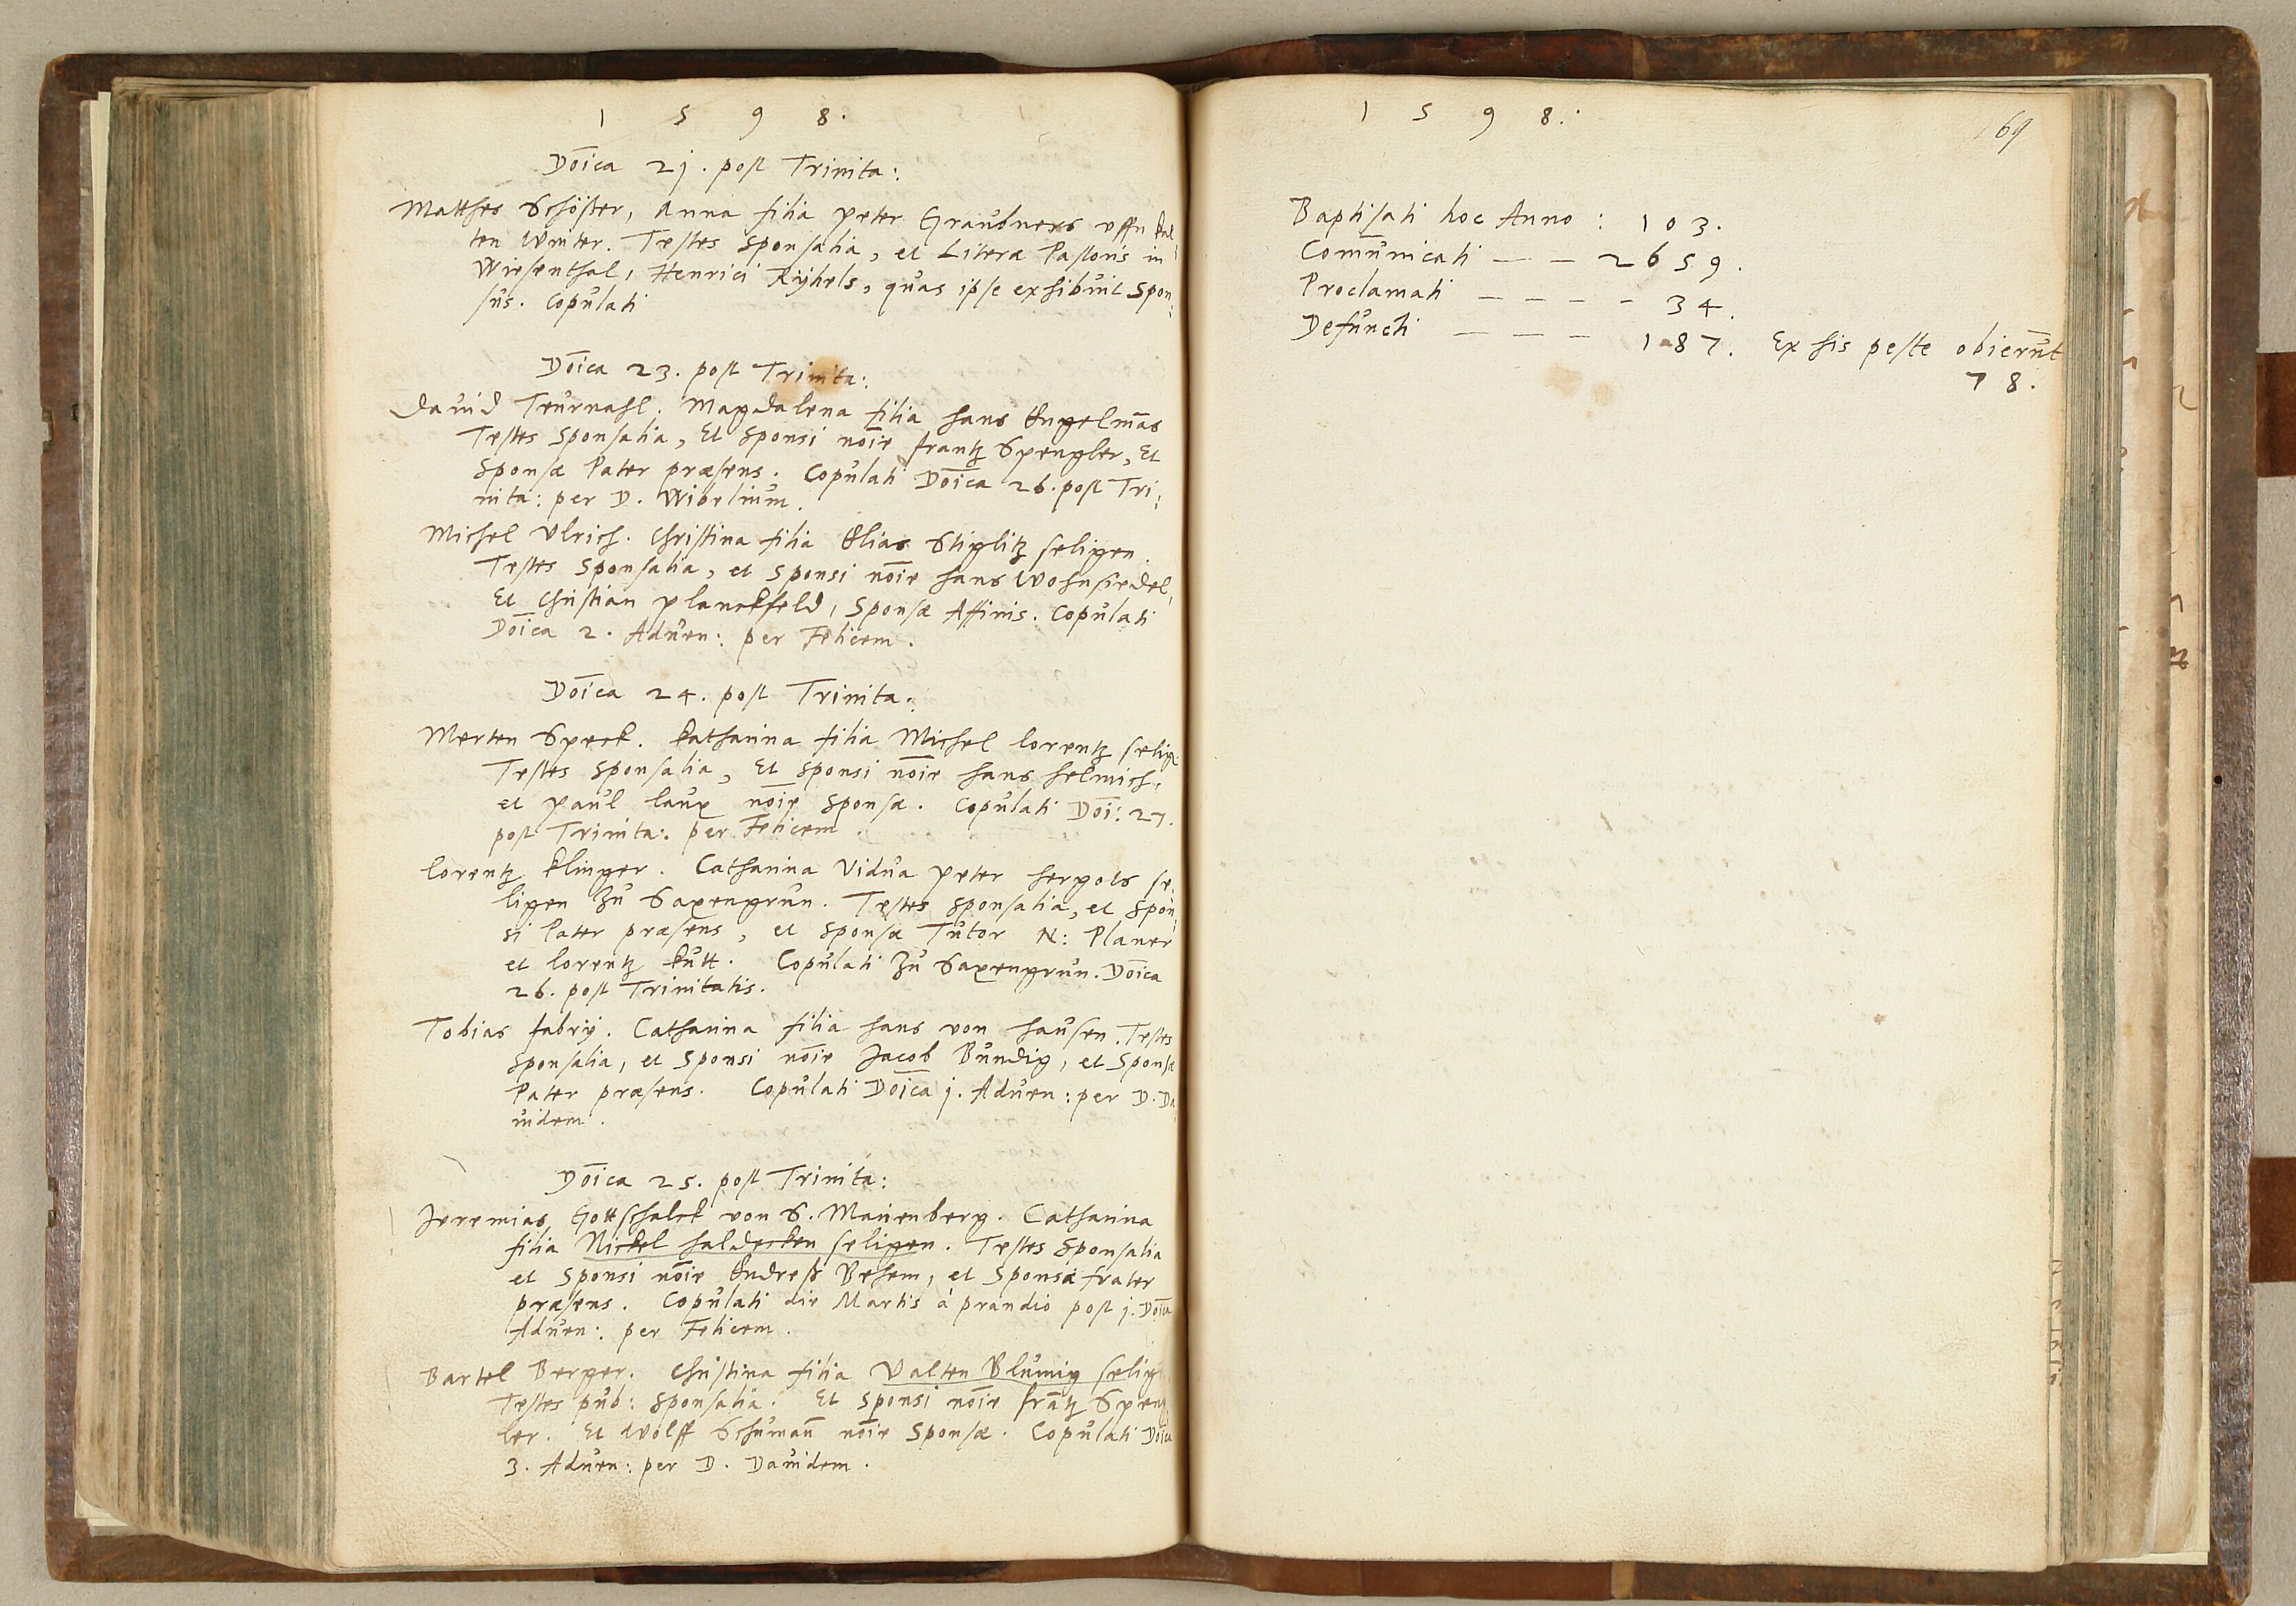 1 5 9 8.
Dōica 2j. post Trinita:
Matthes Schöster, Anna filia Peter Graubners uffn kal
ten Winter. Testes Sponsalia, et Literæ Pastoris in
Wiesenthal, Henrici Rÿhels, quas ipse exhibuit Spon:
sus. Copulati
Dōica 23. post Trinita:
David Teurnahl. Magdalena filia Hans Engelmās
Testes Sponsalia, Et Sponsi nōie Frantz Spengler, Et
Sponsæ Pater præsens. Copulati Dōica 26. post Tri:
nita: per D. Wibelium.
Michel Ulrich. Christina filia Elias Stiglitz seligen.
Testes Sponsalia, et Sponsi nōie Hans Wohnsiedel,
Et Christian Planckfeld, Sponsæ Affinis. Copulati
Dōica 2. Aduen: per Felicem.
Dōica 24. post Trinita:
Merten Speck. Katharina filia Michel Lorentz selig.
Testes Sponsalia, Et Sponsi nōie Hans Helmich,
et Paul Laux nōie Sponsæ. Copulati Dōi: 27.
post Trinita: per Felicem.
Lorentz Klinger. Catharina Vidua Peter Hergots se:
ligen zu Saxengrun. Testes Sponsalia, et Spon:
si Pater præsens, et Sponsæ Tutor N: Planer
et Lorentz Kutt. Copulati zu Saxengrun. Dōica
26. post Trinitatis.
Tobias Fabrÿ. Catharina filia Hans von Hausen. Testes
Sponsalia, et Sponsi nōie Jacob Bundig, et Sponsæ
Pater præsens. Copulati Dōica j. Aduen: per D. Da
uidem.
Dōica 25. post Trinita:
Jeremias Gottschalck von S. Marienberg. Catharina
filia Nickel Haldecken seligen. Testes Sponsalia
et Sponsi nōie Endreß Behem, et Sponsæ frater
præsens. Copulati die Martis à prandio post j. Dōicā
Aduen: per Felicem.
Bartel Berger. Christina filia Valten Blumig selig
Testes pub: Sponsalia. Et Sponsi nōie Frātz Speng
ler. Et Wolff Schumañ nōie Sponsæ. Copulati Dōica
3. Aduen: per D. Dauidem.
1 5 9 8.
169
Baptisati hoc Anno: 1 0 3.
Com̄unicati — — 2 6 5 9.
Proclamati — — — — 3 4.
Defuncti — — — 1 8 7. Ex his peste obierūt
7 8.